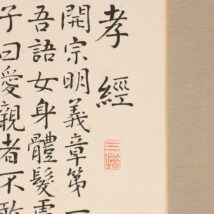 孝經
開宗明義章第一
吾語女身體髮
子曰愛親者不敢